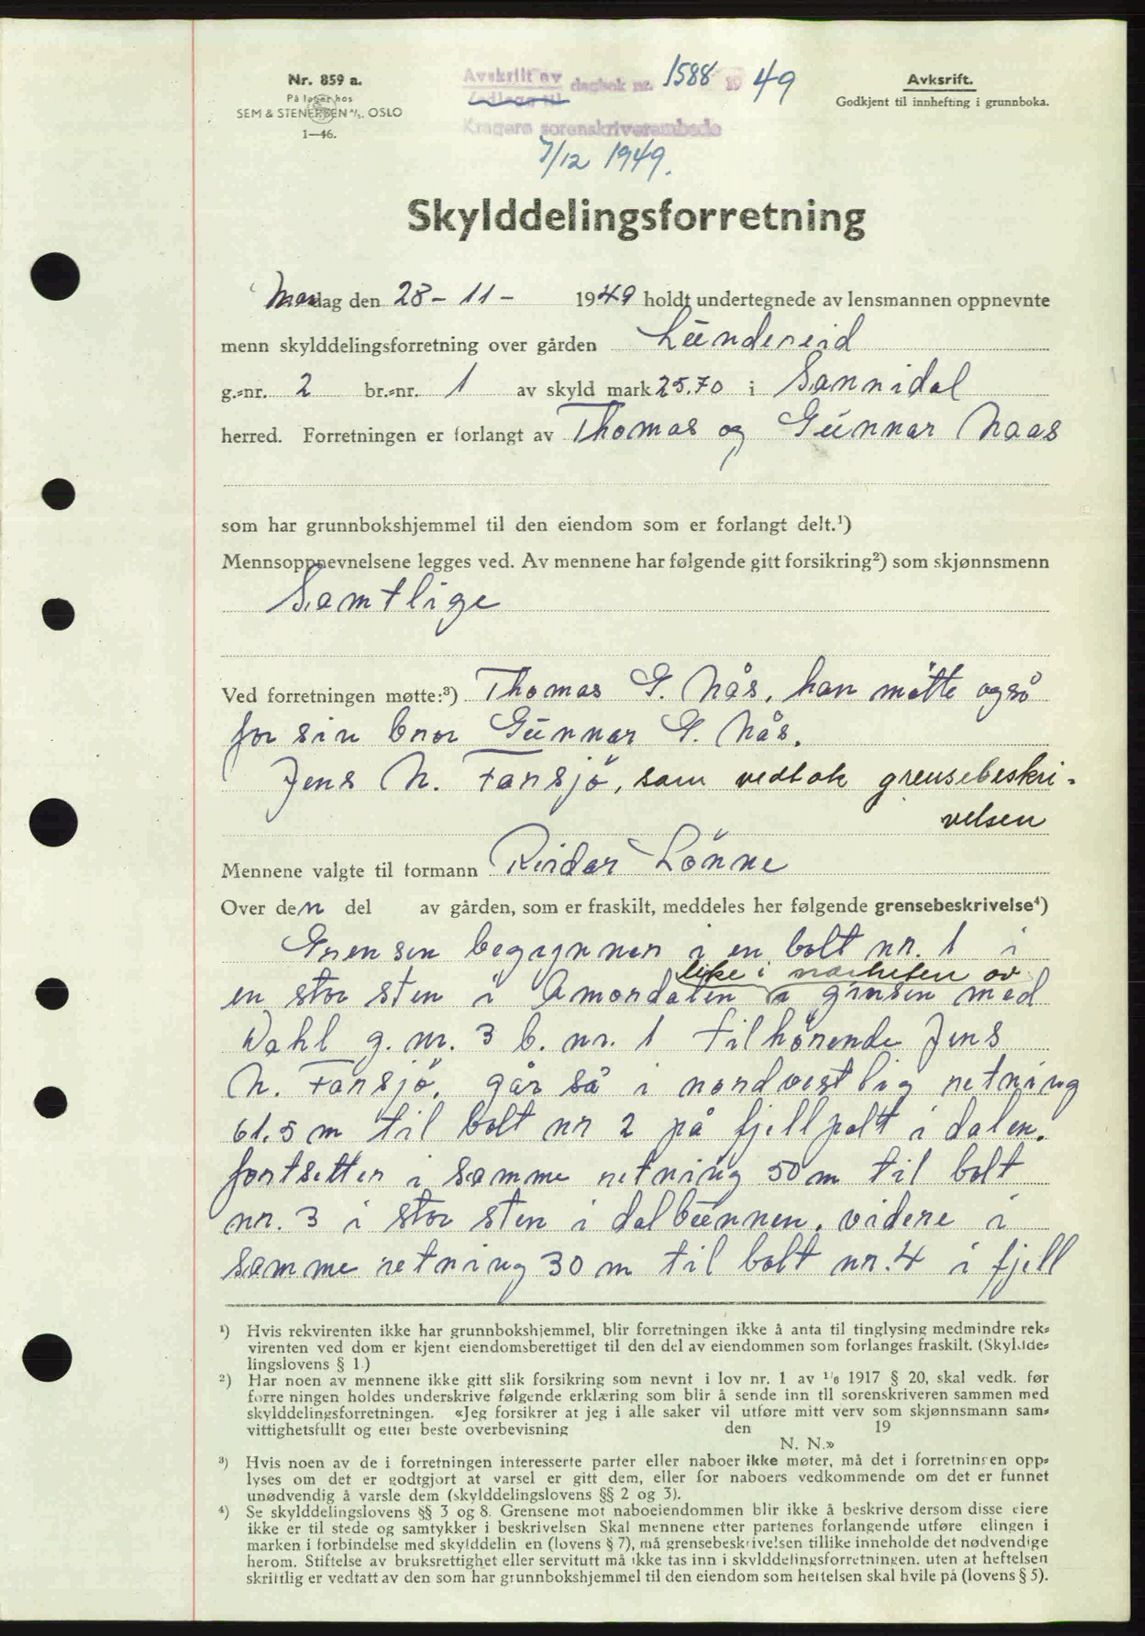 Nr. 859 a.
På lager hos
SEM & STENERSEN A/S. OSLO
1—46.
Avskrift av dagbok nr. 1588 19 49
Vedlegg til
Kragerø sorenskriverembede
7/12 1949.
Avksrift.
Godkjent til innhefting i grunnboka.
Skylddelingsforretning
Mandag den 28 - 11 - 1949 holdt undertegnede av lensmannen oppnevnte
menn skylddelingsforretning over gården Lundereid
g.-nr. 2 br.-nr. 1 av skyld mark 25.70 i Sannidal
herred. Forretningen er forlangt av Thomas og Gunnar Naas
som har grunnbokshjemmel til den eiendom som er forlangt delt.¹)
Mennsoppnevnelsene legges ved. Av mennene har følgende gitt forsikring²) som skjønnsmenn
Samtlige
Ved forretningen møtte:³) Thomas G. Nås, han møtte også
for sin bror Gunnar G. Nås.
Jens N. Farsjö, som vedtok grensebeskri-
velsen
Mennene valgte til formann Reidar Lønne
Over den del av gården, som er fraskilt, meddeles her følgende grensebeskrivelse⁴)
Grensen begynner i en bolt nr. 1 i
like i nærheten av
en stor sten i Amondalen i grensen med
Dahl g. nr. 3 b. nr. 1 tilhørende Jens
N. Farsjö, går så i nordvestlig retning
61.5 m til bolt nr 2 på fjellpalt i dalen.
fortsetter i samme retning 50 m til bolt
nr. 3 i stor sten i dalbunnen, videre i
samme retning 30 m til bolt nr. 4 i fjell
¹) Hvis rekvirenten ikke har grunnbokshjemmel, blir forretningen ikke å anta til tinglysing medmindre rek-
virenten ved dom er kjent eiendomsberettiget til den del av eiendommen som forlanges fraskilt. (Skyldde-
lingslovens § 1.)
²) Har noen av mennene ikke gitt slik forsikring som nevnt i lov nr. 1 av 1/6 1917 § 20, skal vedk. før
forre ningen holdes underskrive følgende erklæring som blir å sende inn til sorenskriveren sammen med
skylddelingsforretningen. «Jeg forsikrer at jeg i alle saker vil utføre mitt verv som skjønnsmann sam-
vittighetsfullt og etter beste overbevisning den 19
N. N.»
³) Hvis noen av de i forretningen interesserte parter eller naboer ikke møter, må det i forretningen opp-
lyses om det er godtgjort at varsel er gitt dem, eller for naboers vedkommende om det er funnet
unødvendig å varsle dem (skylddelingslovens §§ 2 og 3).
⁴) Se skylddelingslovens §§ 3 og 8. Grensene mot naboeiendommen blir ikke å beskrive dersom disse eiere
ikke er til stede og samtykker i beskrivelsen Skal mennene etter partenes forlangende utføre elingen i
marken i forbindelse med skylddelin en (lovens § 7), må grensebeskrivelsen tillike inneholde det nødvendige
herom. Stiftelse av bruksrettighet eller servitutt må ikke tas inn i skylddelingsforretningen, uten at heftelsen
skriftlig er vedtatt av den som har grunnbokshjemmel til den eiendom som heftelsen skal hvile på (lovens § 5).